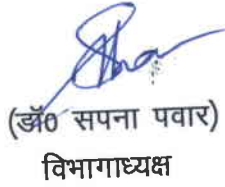 (डॉ0 सपना पवार)
विभागाध्यक्ष